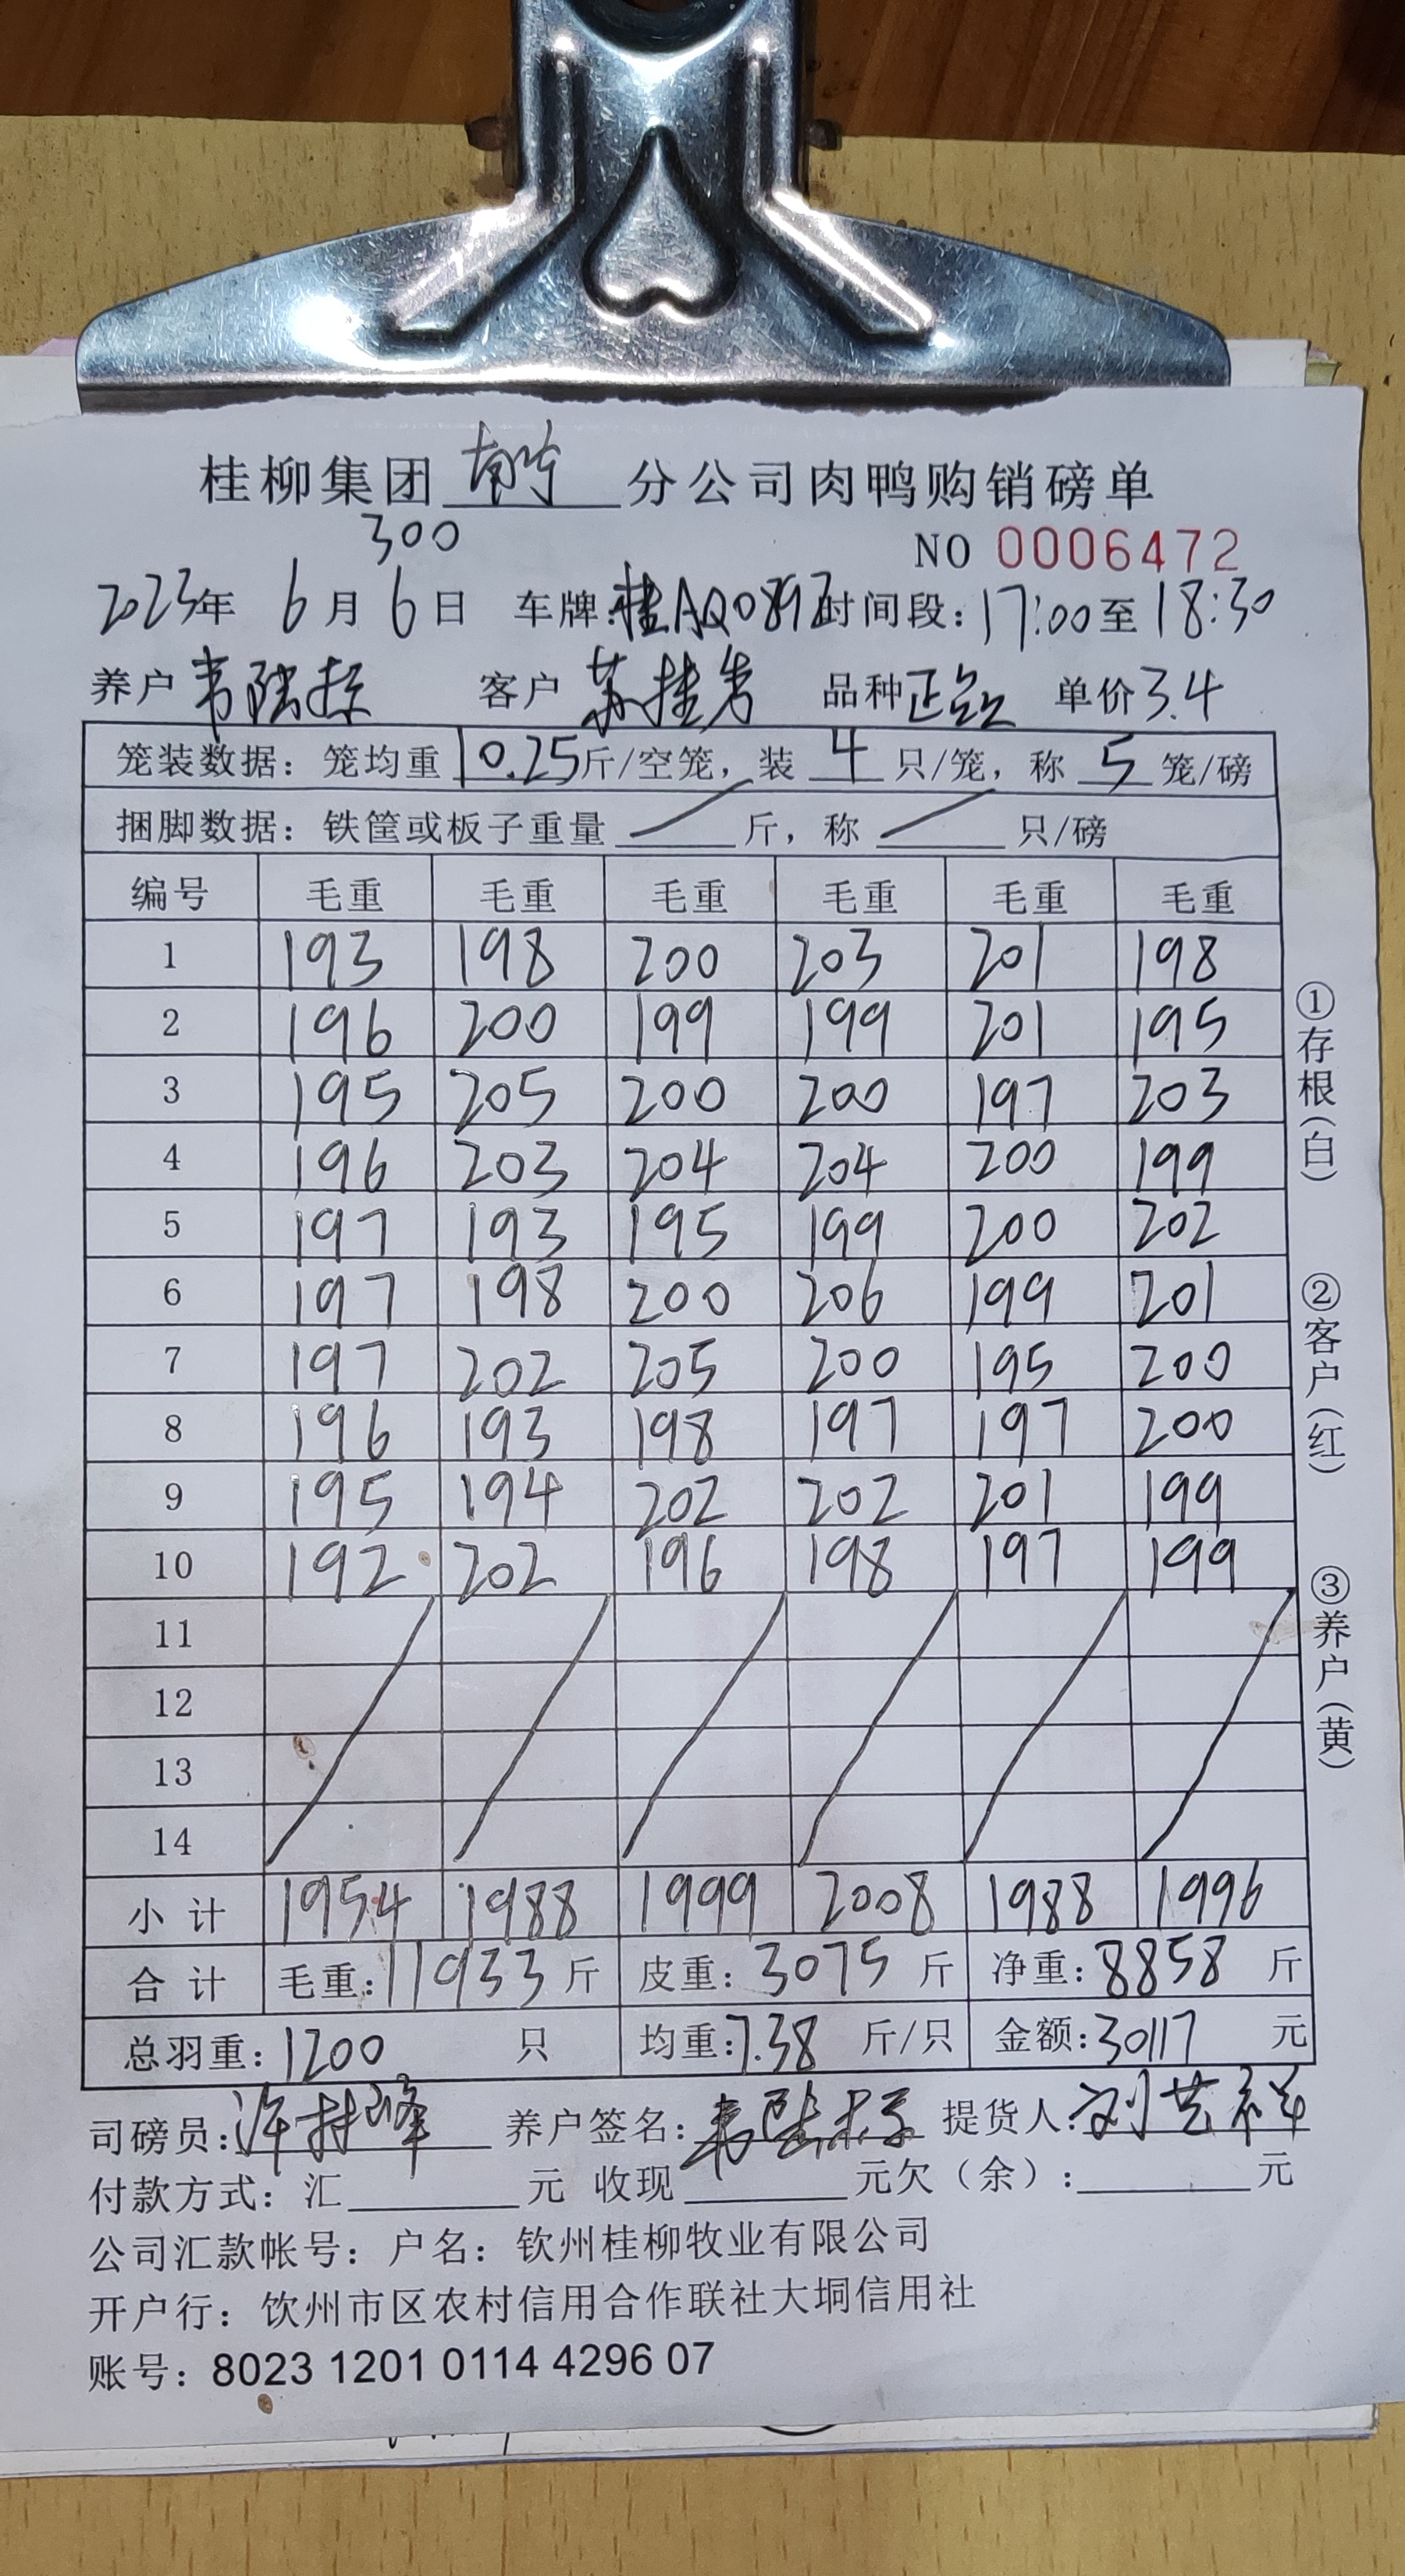 桂柳集团 南宁 分公司肉鸭购销磅单
300
NO 0006472
2023年 6月6日 车牌:桂AQ0897 时间段:17:00至18:30
养户 客户 苏桂 品种 正 单价3.4
笼装数据：笼均重 10.25斤/空笼，装 4 只/笼，称 5 笼/磅
捆脚数据：铁筐或板子重量 斤，称 只/磅
编号 毛重 毛重 毛重 毛重 毛重 毛重
1 193 198 200 203 201 198
2 196 200 199 199 201 195
3 195 205 200 200 197 203
4 196 203 204 204 200 199
5 197 193 195 199 200 202
6 197 198 200 206 199 201
7 197 202 205 200 195 200
8 196 193 198 197 197 200
9 195 194 202 202 201 199
10 192 202 196 198 197 199
11
12
13
14
小计 1954 1988 1999 2008 1988 1996
合计 毛重:11933斤 皮重:3075斤 净重:8858斤
总羽重:1200 只 均重:7.38 斤/只 金额:30117 元
司磅员: 养户签名: 提货人:刘
付款方式：汇 元 收现 元欠（余）: 元
公司汇款帐号：户名：钦州桂柳牧业有限公司
开户行：饮州市区农村信用合作联社大垌信用社
账号：8023 1201 0114 4296 07
①存根(白)
②客户(红)
③养户(黄)